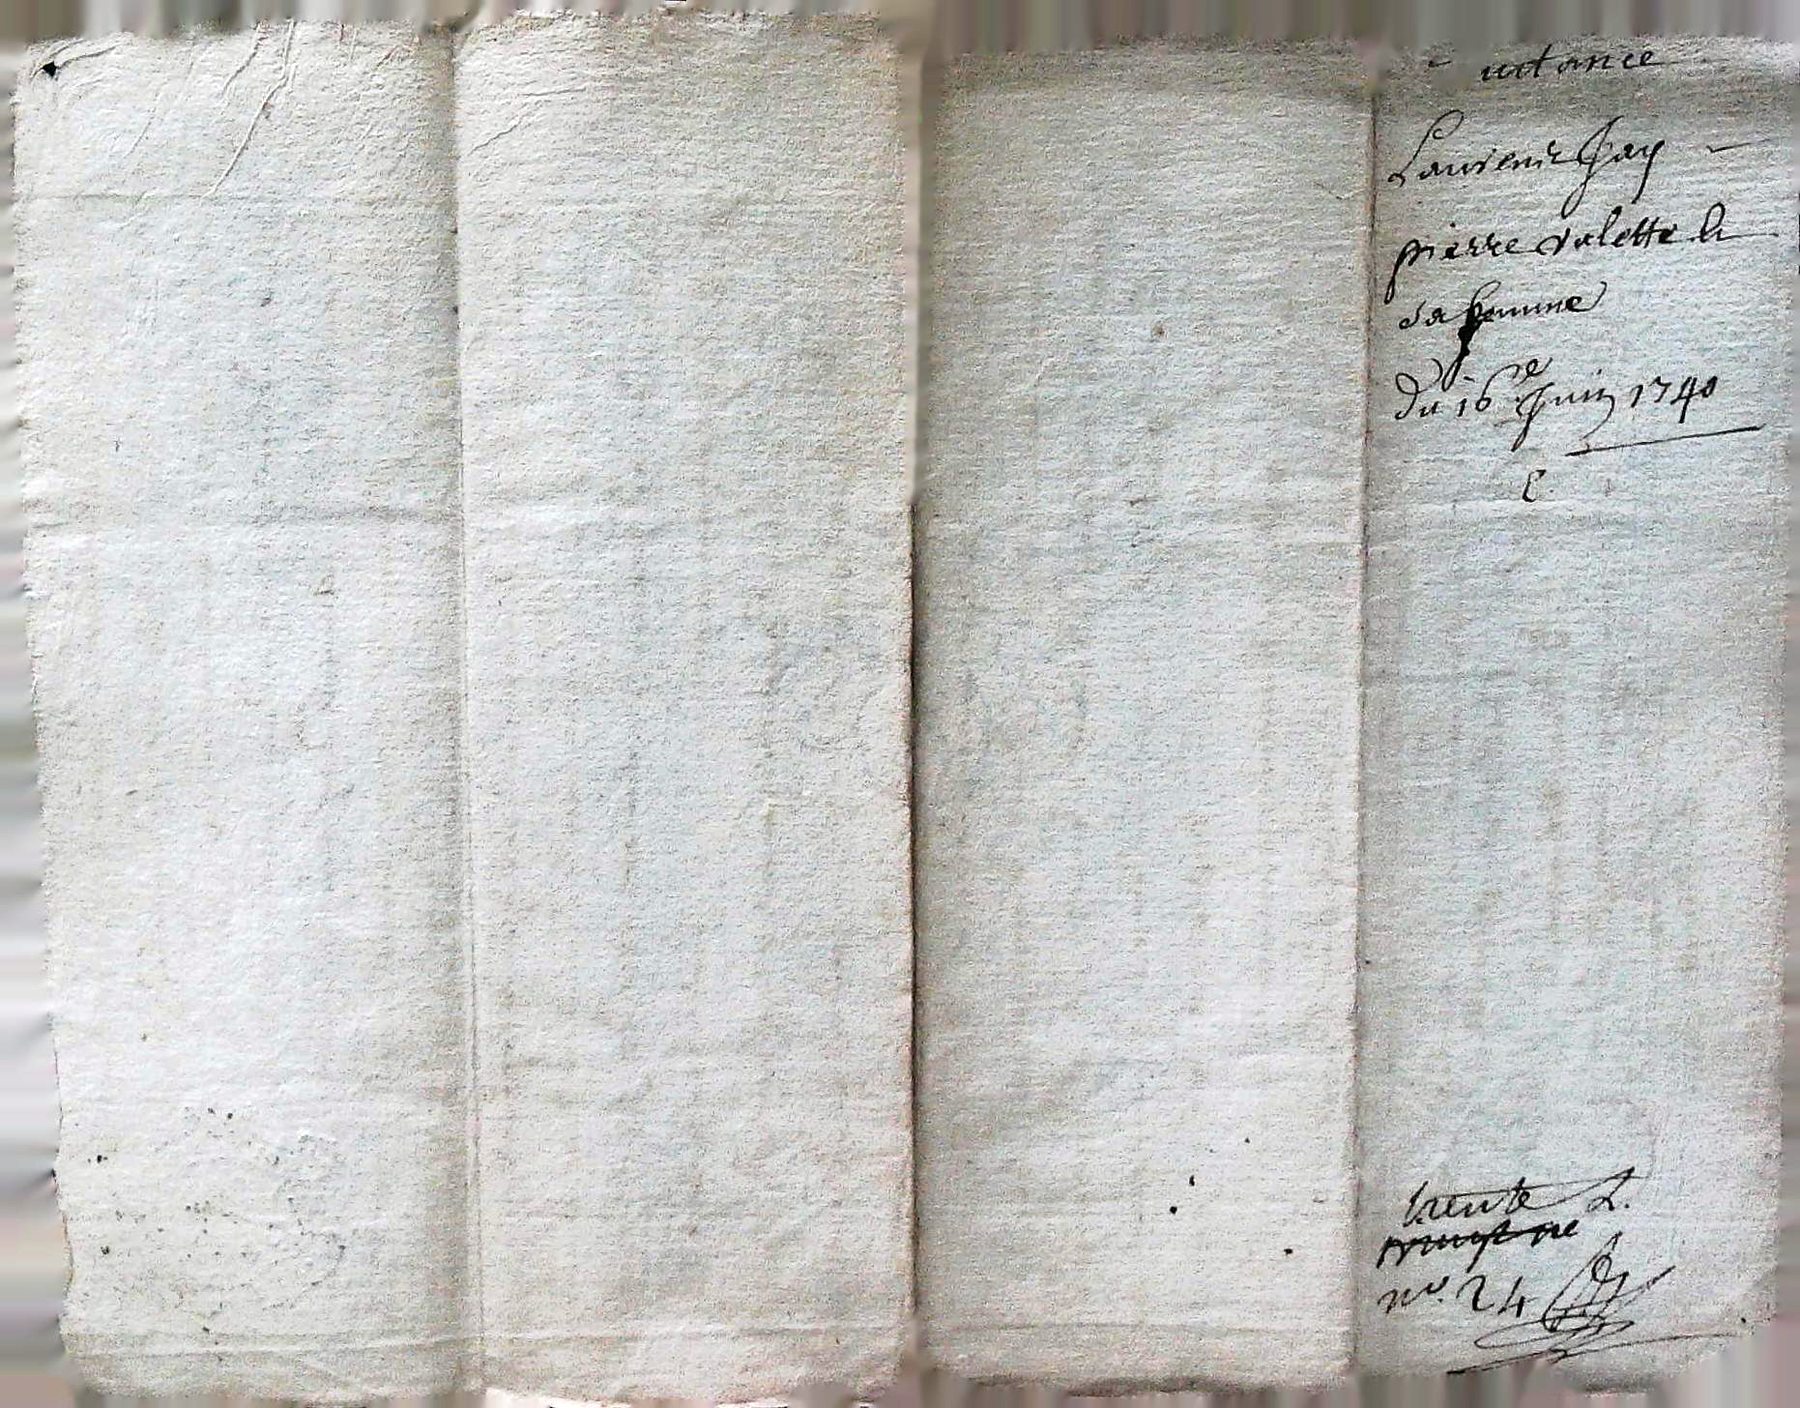 uitance
Laurent Jay
pierre valette &
sa femme
du 16e Juin 1740
trente L.
no. 24